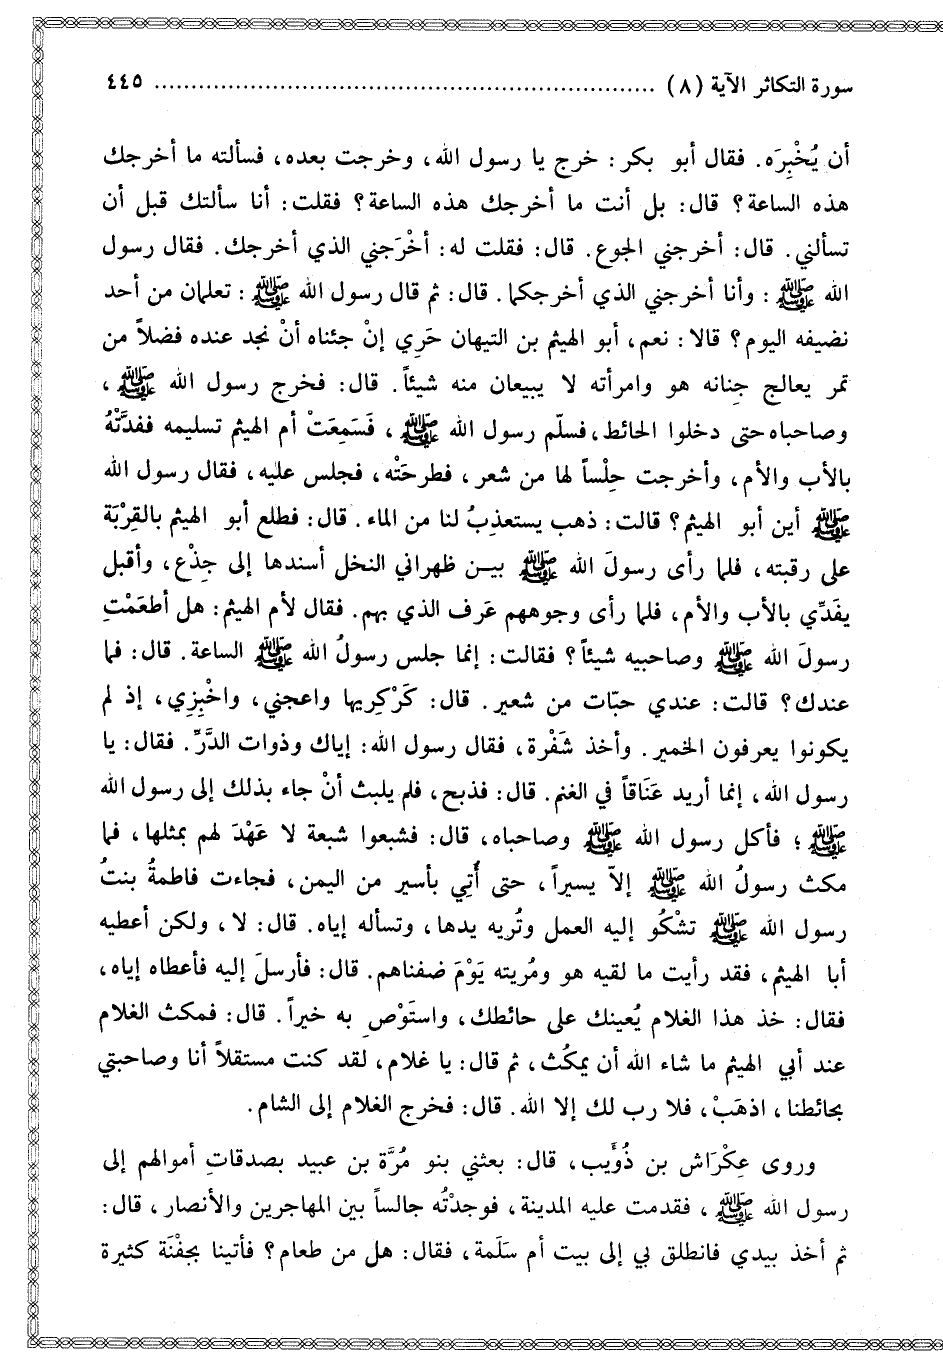 سورة التكاثر الآية (٨) ........................................................................ ٤٤٥
أن يُخْبِرَه. فقال أبو بكر: خرج يا رسول الله، وخرجت بعده، فسألته ما أخرجك
هذه الساعة؟ قال: بل أنت ما أخرجك هذه الساعة؟ فقلت: أنا سألتك قبل أن
تسألني. قال: أخرجني الجوع. قال: فقلت له: أخْرَجني الذي أخرجك. فقال رسول
الله ﷺ: وأنا أخرجني الذي أخرجكما. قال: ثم قال رسول الله ﷺ: تعلمان من أحد
نضيفه اليوم؟ قالا: نعم، أبو الهيثم بن التيهان حَرِي إنْ جئناه أنْ نجد عنده فضلاً من
تمر يعالج جِنانه هو وامرأته لا يبيعان منه شيئاً. قال: فخرج رسول الله ﷺ،
وصاحباه حتى دخلوا الحائط، فسلّم رسول الله ﷺ، فَسَمِعَتْ أم الهيثم تسليمه ففدَّتْهُ
بالأب والأم، وأخرجت حِلْساً لها من شعر، فطرحَتْه، فجلس عليه، فقال رسول الله
ﷺ أين أبو الهيثم؟ قالت: ذهب يستعذِبُ لنا من الماء. قال: فطلع أبو الهيثم بالقِرْبَة
على رقبته، فلما رأى رسولَ الله ﷺ بيـن ظهراني النخل أسندها إلى جِذْع، وأقبل
يفَدِّي بالأب والأم، فلما رأى وجوههم عَرف الذي بهم. فقال لأم الهيثم: هل أطعَمْتِ
رسولَ الله ﷺ وصاحبيه شيئاً؟ فقالت: إنما جلس رسولُ الله ﷺ الساعة. قال: فما
عندك؟ قالت: عندي حبّات من شعير. قال: كَرْكِريها واعجني، واخْبِزِي، إذ لم
يكونوا يعرفون الخمير. وأخذ شَفْرة، فقال رسول الله: إياك وذوات الدَّرِّ. فقال: يا
رسول الله، إنما أريد عَنَاقاً في الغنم. قال: فذبح، فلم يلبث أنْ جاء بذلك إلى رسول الله
ﷺ؛ فأكل رسول الله ﷺ وصاحباه، قال: فشبعوا شبعة لا عَهْدَ لهم بمثلها، فما
مكث رسولُ الله ﷺ إلاّ يسيراً، حتى أُتِي بأسير من اليمن، فجاءت فاطمةُ بنتُ
رسول الله ﷺ تشْكُو إليه العمل وتُريه يدها، وتسأله إياه. قال: لا، ولكن أعطيه
أبا الهيثم، فقد رأيت ما لقيه هو ومُريته يَوْمَ ضفناهم. قال: فأرسلَ إليه فأعطاه إياه،
فقال: خذ هذا الغلام يُعينك على حائطك، واستَوْصِ به خيراً. قال: فمكث الغلام
عند أبي الهيثم ما شاء الله أن يمكُث، ثم قال: يا غلام، لقد كنت مستقلاً أنا وصاحبتي
بحائطنا، اذهَبْ، فلا رب لك إلا الله. قال: فخرج الغلام إلى الشام.
وروى عِكْرَاش بن ذُوَيب، قال: بعثني بنو مُرَّة بن عبيد بصدقاتِ أموالهم إلى
رسول الله ﷺ، فقدمت عليه المدينة، فوجدْتُه جالساً بين المهاجرين والأنصار، قال:
ثم أخذ بيدي فانطلق بي إلى بيت أم سَلَمة، فقال: هل من طعام؟ فأتينا بجفْنَة كثيرة